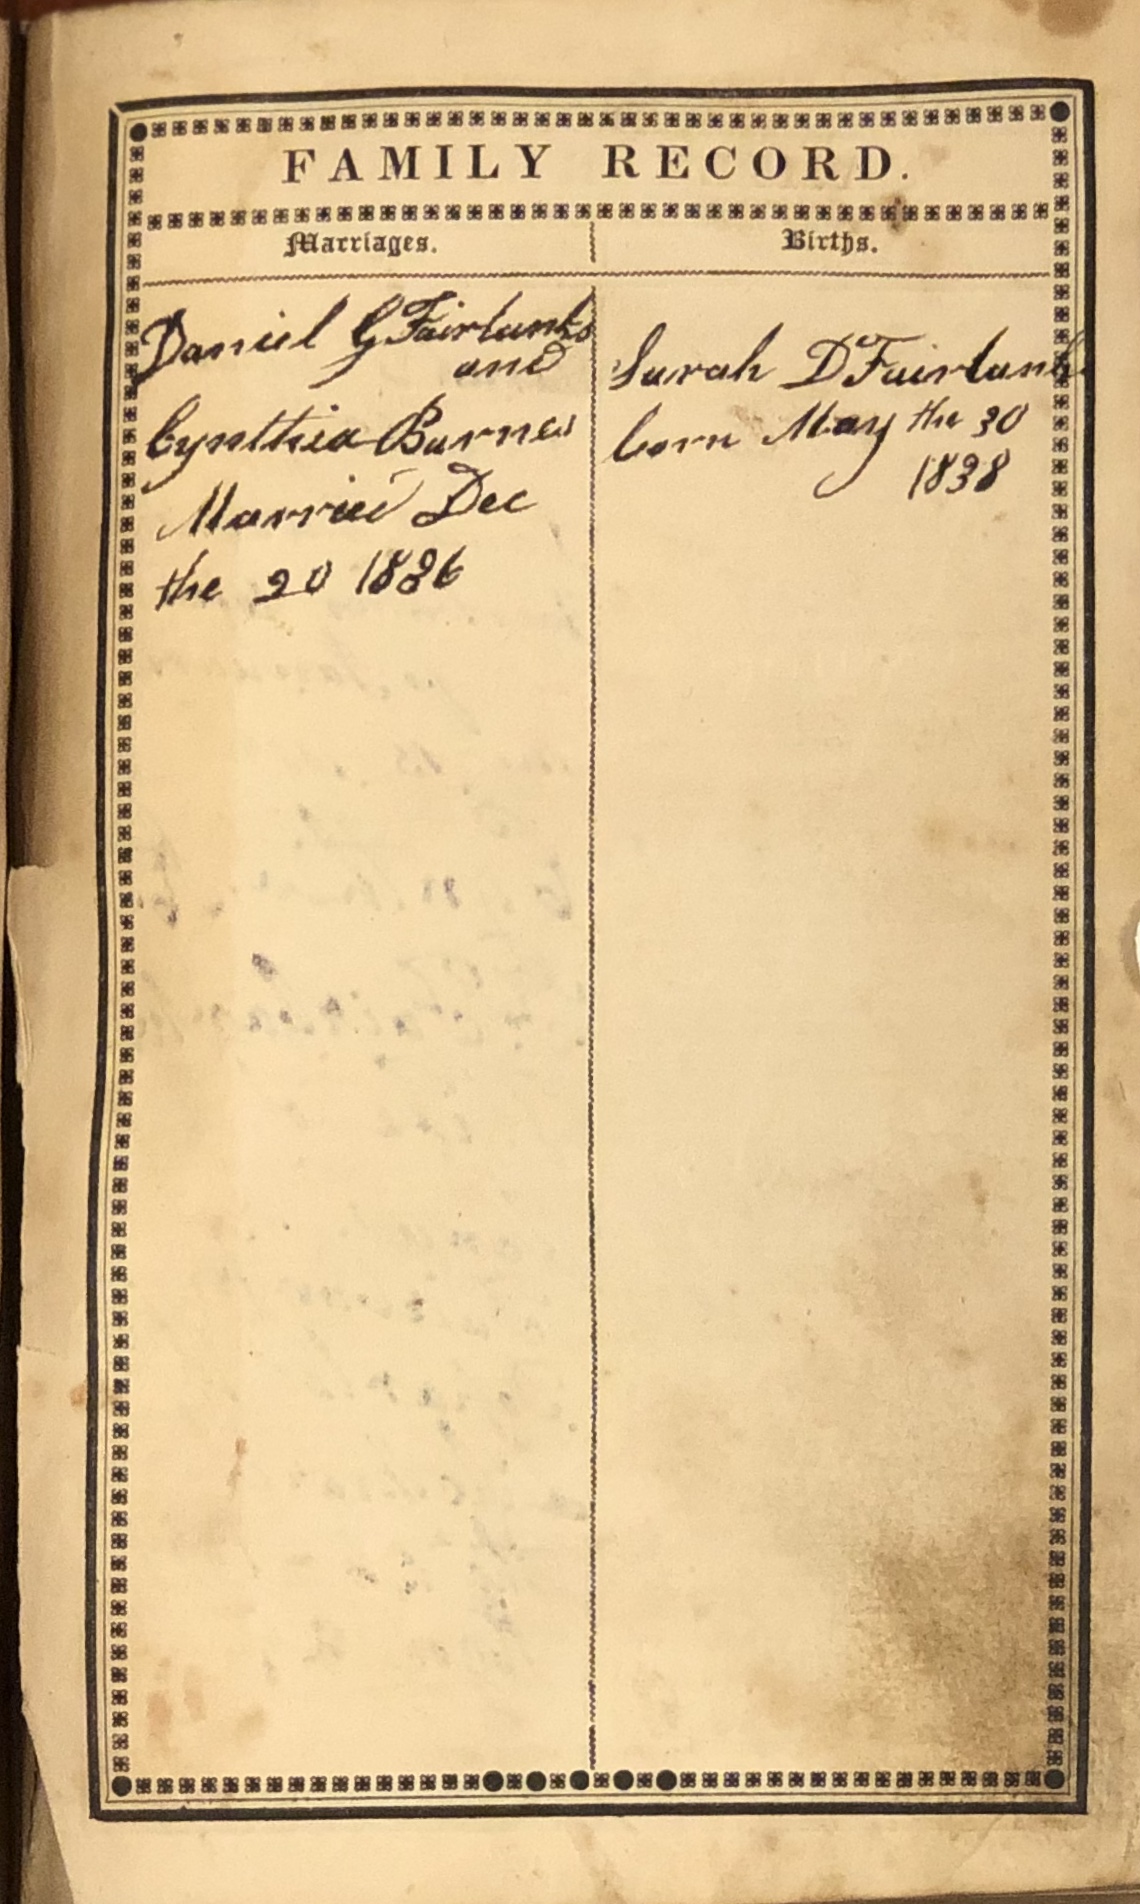 FAMILY RECORD.
Marriages.
Daniel G Fairbanks
and
Cynthia Barnes
Married Dec
the 20 1836
Births.
Sarah D Fairbanks
born May the 30
1838